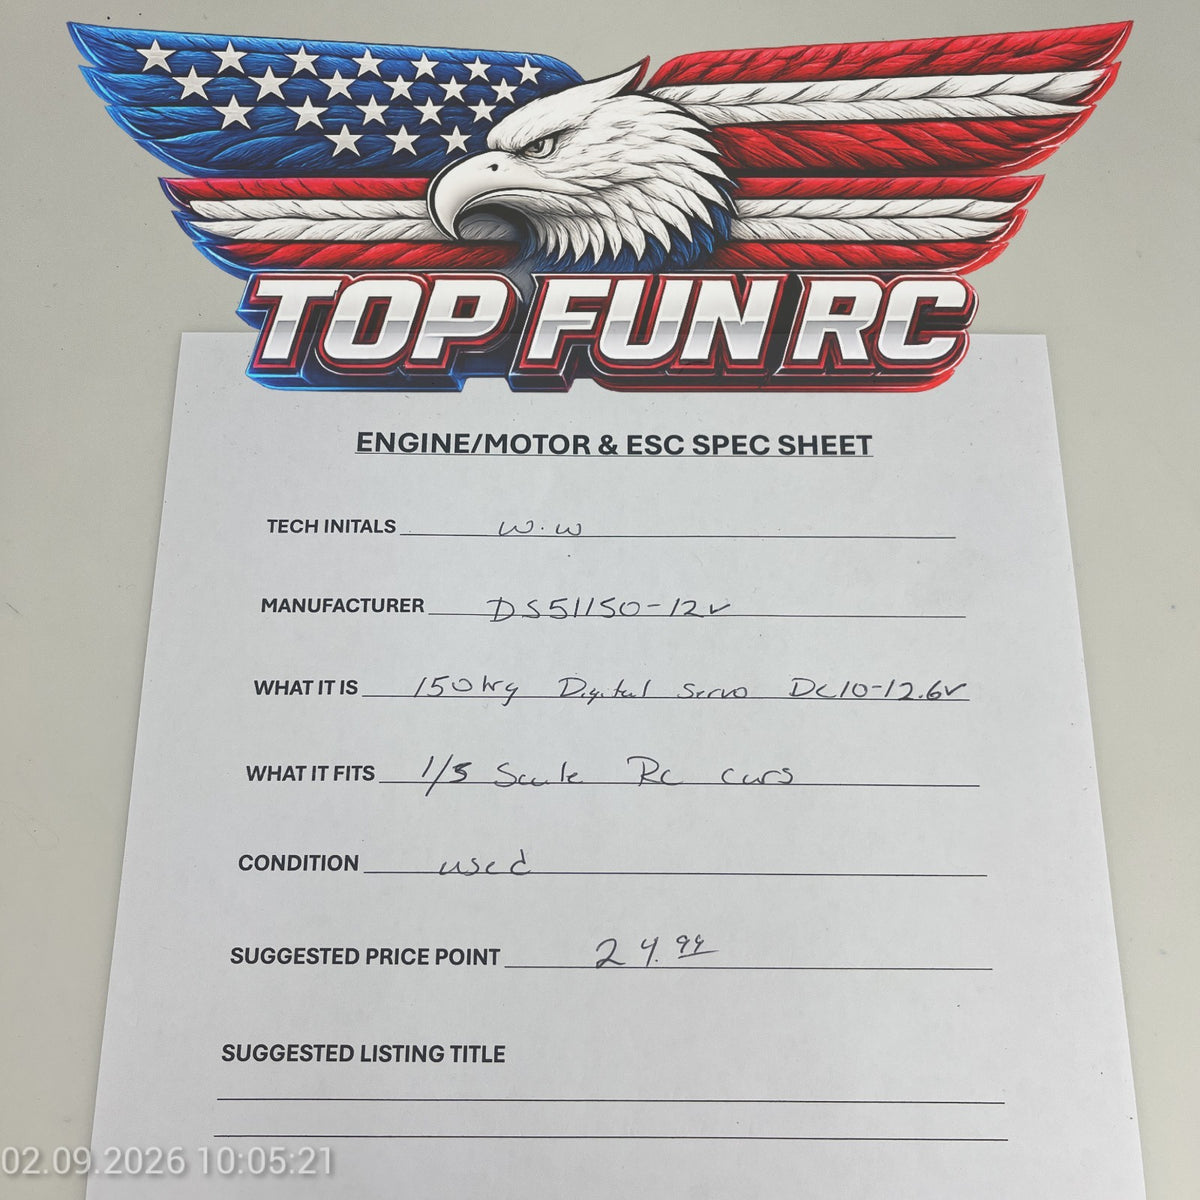 TOP FUN RC
ENGINE/MOTOR & ESC SPEC SHEET
TECH INITALS w.w
MANUFACTURER DS51150-12v
WHAT IT IS 150kg Digital Servo DC10-12.6v
WHAT IT FITS 1/5 Scale Rc cars
CONDITION used
SUGGESTED PRICE POINT 24.99
SUGGESTED LISTING TITLE
02.09.2026 10:05:21